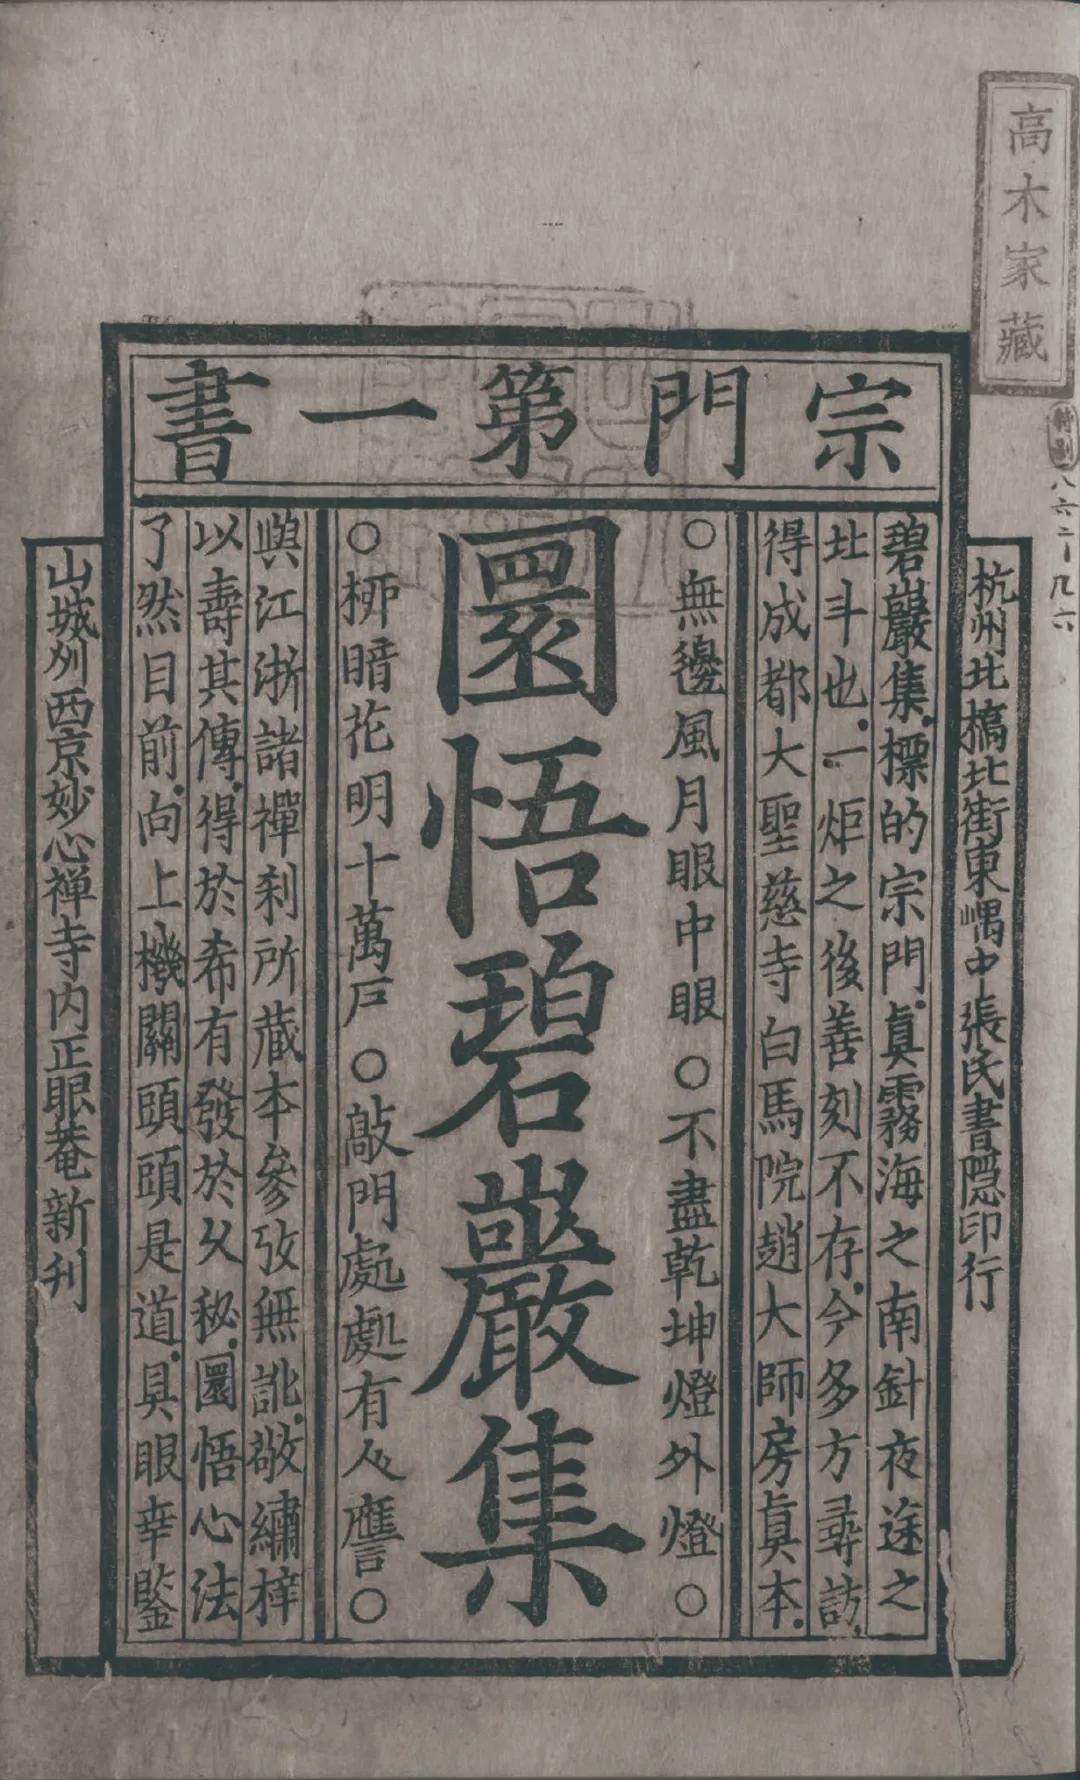 高木家藏
特別
八六二-九六
宗門第一書
杭州北橋北街東嵎中張氏書隠印行
碧巖集標的宗門真霧海之南針夜途之
北斗也一炬之後善刻不存今多方尋訪
得成都大聖慈寺白馬院趙大師房真本
○無邊風月眼中眼○不盡乾坤燈外燈○
圜悟碧巖集
○桺暗花明十萬戶○敲門處處有人譍○
與江浙諸禪刹所藏本參攷無訛敬繡梓
以壽其傳得於希有發於久秘圜悟心法
了然目前向上機關頭頭是道具眼幸鑒
山城州西京妙心禅寺内正眼菴新刊